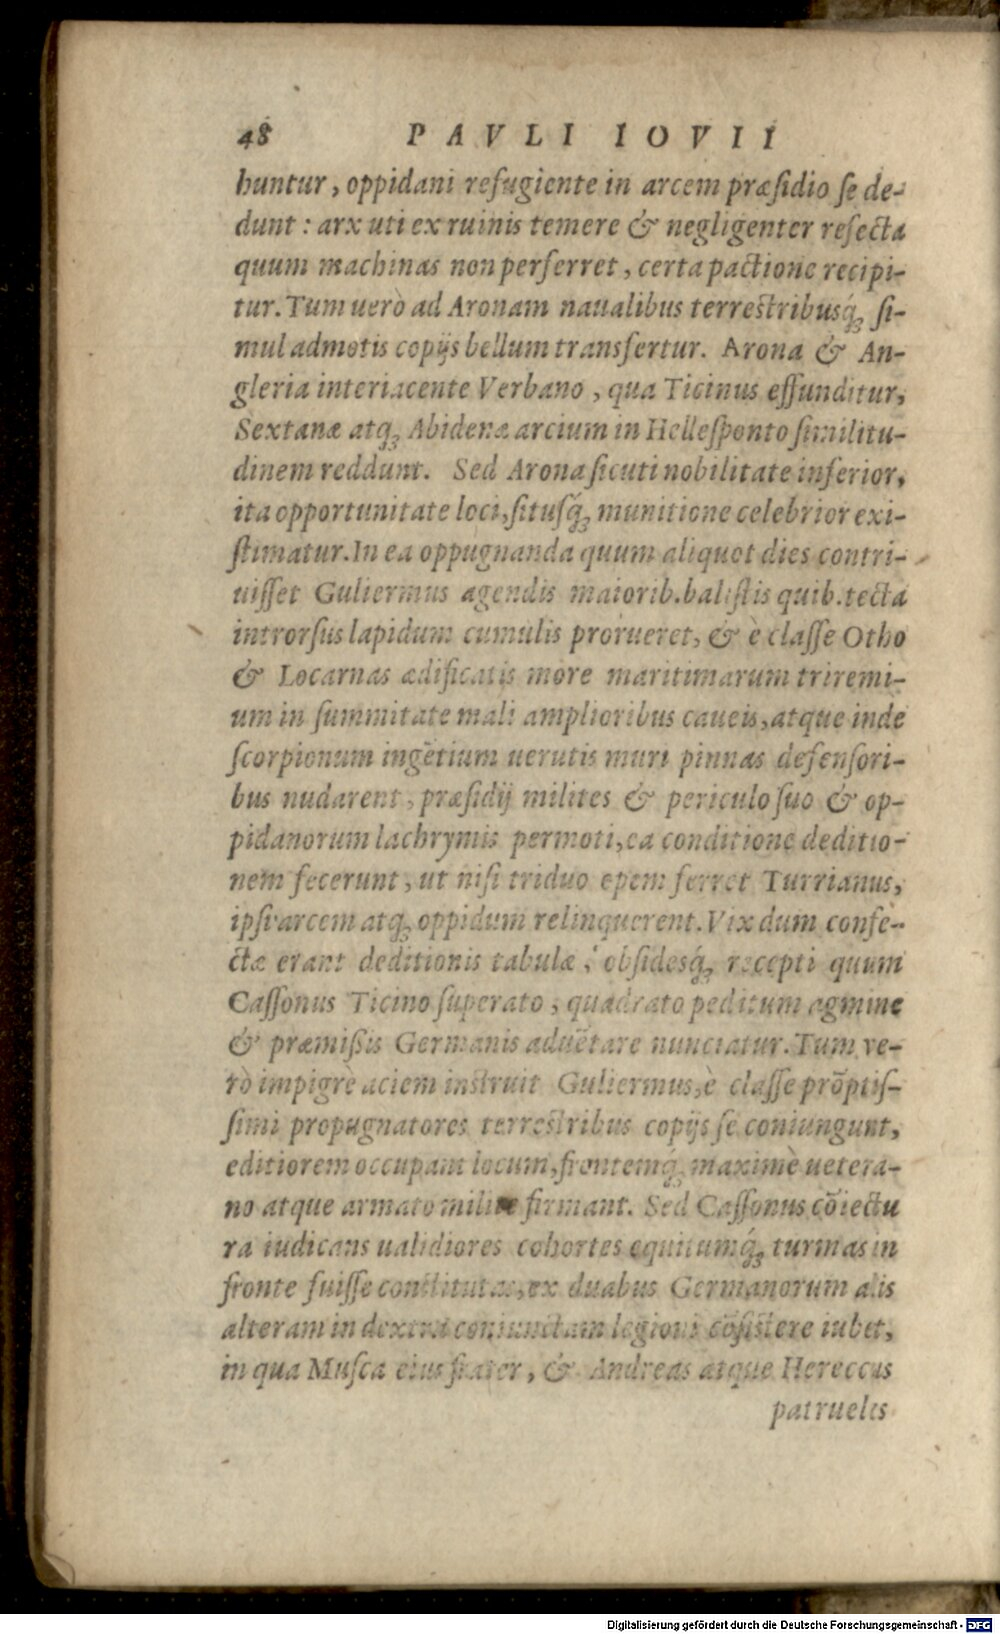 48 PAVLI IOVII
huntur, oppidani refugiente in arcem præsidio se de-
dunt: arx uti ex ruinis temere & negligenter refecta
quum machinas non perferret, certa pactione recipi-
tur. Tum uerò ad Aronam naualibus terrestribusq́ꝫ si-
mul admotis copijs bellum transfertur. Arona & An-
gleria interiacente Verbano, qua Ticinus effunditur,
Sextanæ atqꝫ Abidenæ arcium in Hellesponto similitu-
dinem reddunt. Sed Arona sicuti nobilitate inferior,
ita opportunitate loci, situsq́ꝫ munitione celebrior exi-
stimatur. In ea oppugnanda quum aliquot dies contri-
uisset Guliermus agendis maiorib. balistis quib. tecta
introrsus lapidum cumulis prorueret, & è classe Otho
& Locarnas ædificatis more maritimarum triremi-
um in summitate mali amplioribus caueis, atque inde
scorpionum ingẽtium uerutis muri pinnas defensori-
bus nudarent, præsidij milites & periculo suo & op-
pidanorum lachrymis permoti, ea conditione deditio-
nem fecerunt, ut nisi triduo opem ferret Turrianus,
ipsi arcem atqꝫ oppidum relinquerent. Vix dum confe-
ctæ erant deditionis tabulæ, obsidesq́ꝫ recepti quum
Cassonus Ticino superato, quadrato peditum agmine
& præmissis Germanis aduẽtare nunciatur. Tum ve-
rò impigrè aciem instruit Guliermus, è classe prõptis-
simi propugnatores terrestribus copijs se coniungunt,
editiorem occupant locum, frontemq́ꝫ maximè uetera-
no atque armato milite firmant. Sed Cassonus cõiectu
ra iudicans ualidiores cohortes equitumq́ꝫ turmas in
fronte fuisse constitutas, ex duabus Germanorum alis
alteram in dextra coniunctam legioni cõsistere iubet,
in qua Musca eius frater, & Andreas atque Hereccus
patruelis
Digitalisierung gefördert durch die Deutsche Forschungsgemeinschaft - DFG